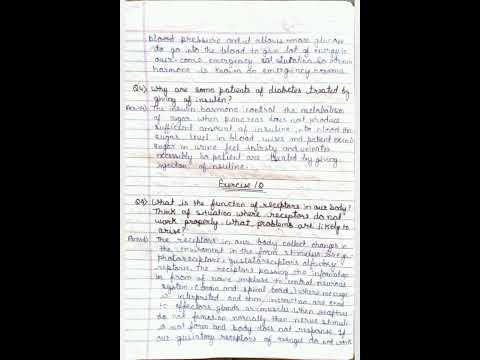 blood pressure and it allows more glucose
to go into the blood to give lot of energy in
our some emergency situation so
hormone is known as emergency
Q4) Why are some patients of diabetes treated by
giving of insulin?
The insulin hormone control the metabolism
of sugar when pancreas does not produce
sufficient amount of insuline, to blood the
sugar level in blood rises and patient
sugar in urine feel thirsty and urinates
so patient are treated by giving
injection of insuline.
Exercise 10
Q5) What is the function of receptors in our body?
Think of situation where receptors do not
work properly. What problems are likely to
arise?
The receptors in our body collect changes in
the in the form stimulus
photoreceptors, gustatoreceptors olfactory
The receptors passing the information
in from of nerve impluse to central nervous
system (brain and spinal cord) where message
is interpreted and then instruction are send
to effectors glands or muscles when receptors
do not function normally then nerve stimuli
is not form and body does not response. If
our gustatory receptors of do not work